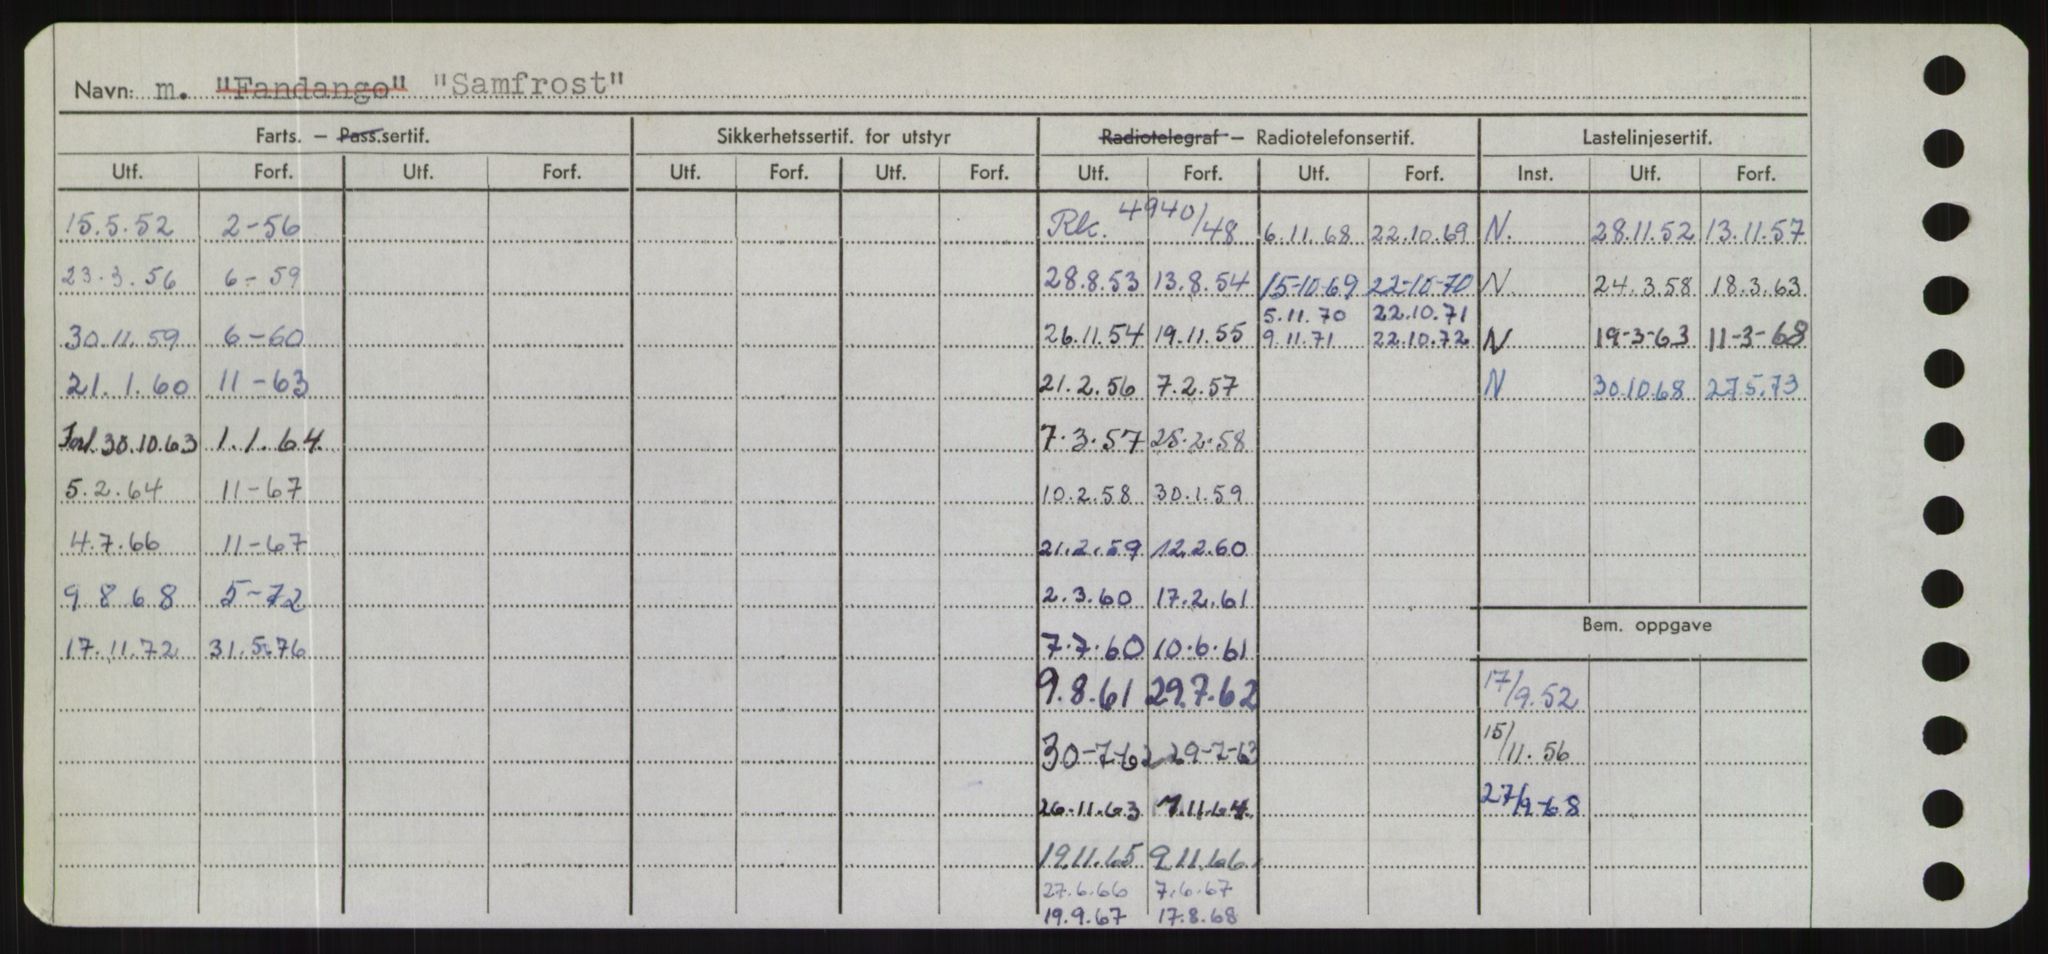 Navn: m. "Fandango" "Samfrost"
Farts. – Pass.sertif. Sikkerhetssertif. for utstyr Radiotelegraf – Radiotelefonsertif. Lastelinjesertif.
Utf. Forf. Utf. Forf. Utf. Forf. Utf. Forf. Utf. Forf. Utf. Forf. Inst. Utf. Forf.
15.5.52 2-56 Rk. 4940/48 6.11.68 22.10.69 N. 28.11.52 13.11.57
23.3.56 6-59 28.8.53 13.8.54 15-10-69 22-10-70 N. 24.3.58 18.3.63
5.11.70 22.10.71
30.11.59 6-60 26.11.54 19.11.55 9.11.71 22.10.72 N 19-3-63 11-3-68
21.1.60 11-63 21.2.56 7.2.57 N 30.10.68 27.5.73
Forl. 30.10.63 1.1.64. 7.3.57 25.2.58
5.2.64 11-67 10.2.58 30.1.59
4.7.66 11-67 21.2.59 12.2.60
9.8.68 5-72 2.3.60 17.2.61
Bem. oppgave
17.11.72 31.5.76 7.7.60 10.6.61
9.8.61 29.7.62 17/9.52
30-7-62 29-7-63 15/11.56
26.11.63 7.11.64. 27/9-68
19.11.65 9.11.66.
27.6.66 7.6.67
19.9.67 17.8.68